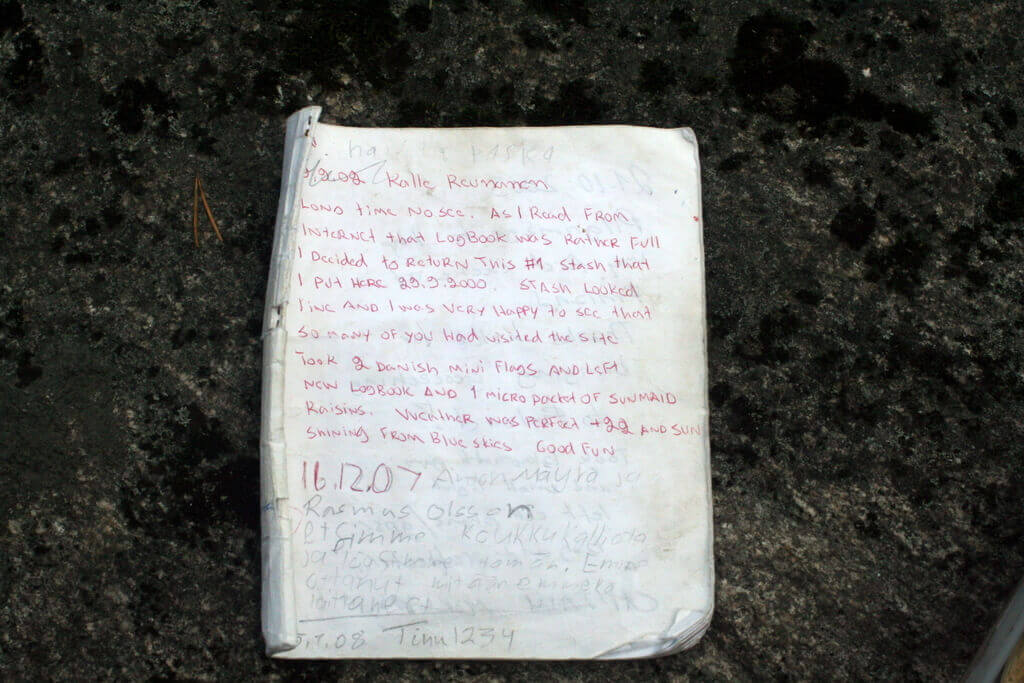 PASKA
Kalle Reunanen
LONG time NO see. AS I Read FROM
INTERNET that LOGBOOK was RATHER FULL
I Decided to RETURN THIS #1 STASH that
I PUT HERE 29.9.2000. STASH LOOKED
FINE AND I was VERY HAPPY TO see that
SO MANY OF YOU HAD VISITED the SITE
TOOK 2 DANISH MINI FLAGS AND LEFT
NEW LOGBOOK AND 1 MICRO PACKET OF SUNMAID
RAISINS. WEATHER WAS PERFECT +22 AND SUN
SHINING FROM BLUE SKIES GOOD FUN
16.12.07 Anton Mäyrä ja
Rasmus Olsson
etsimme koukkukalliota
ja löysimme tämän. Emme
ottanut mitään emmekä
5.7.08 Timu1234